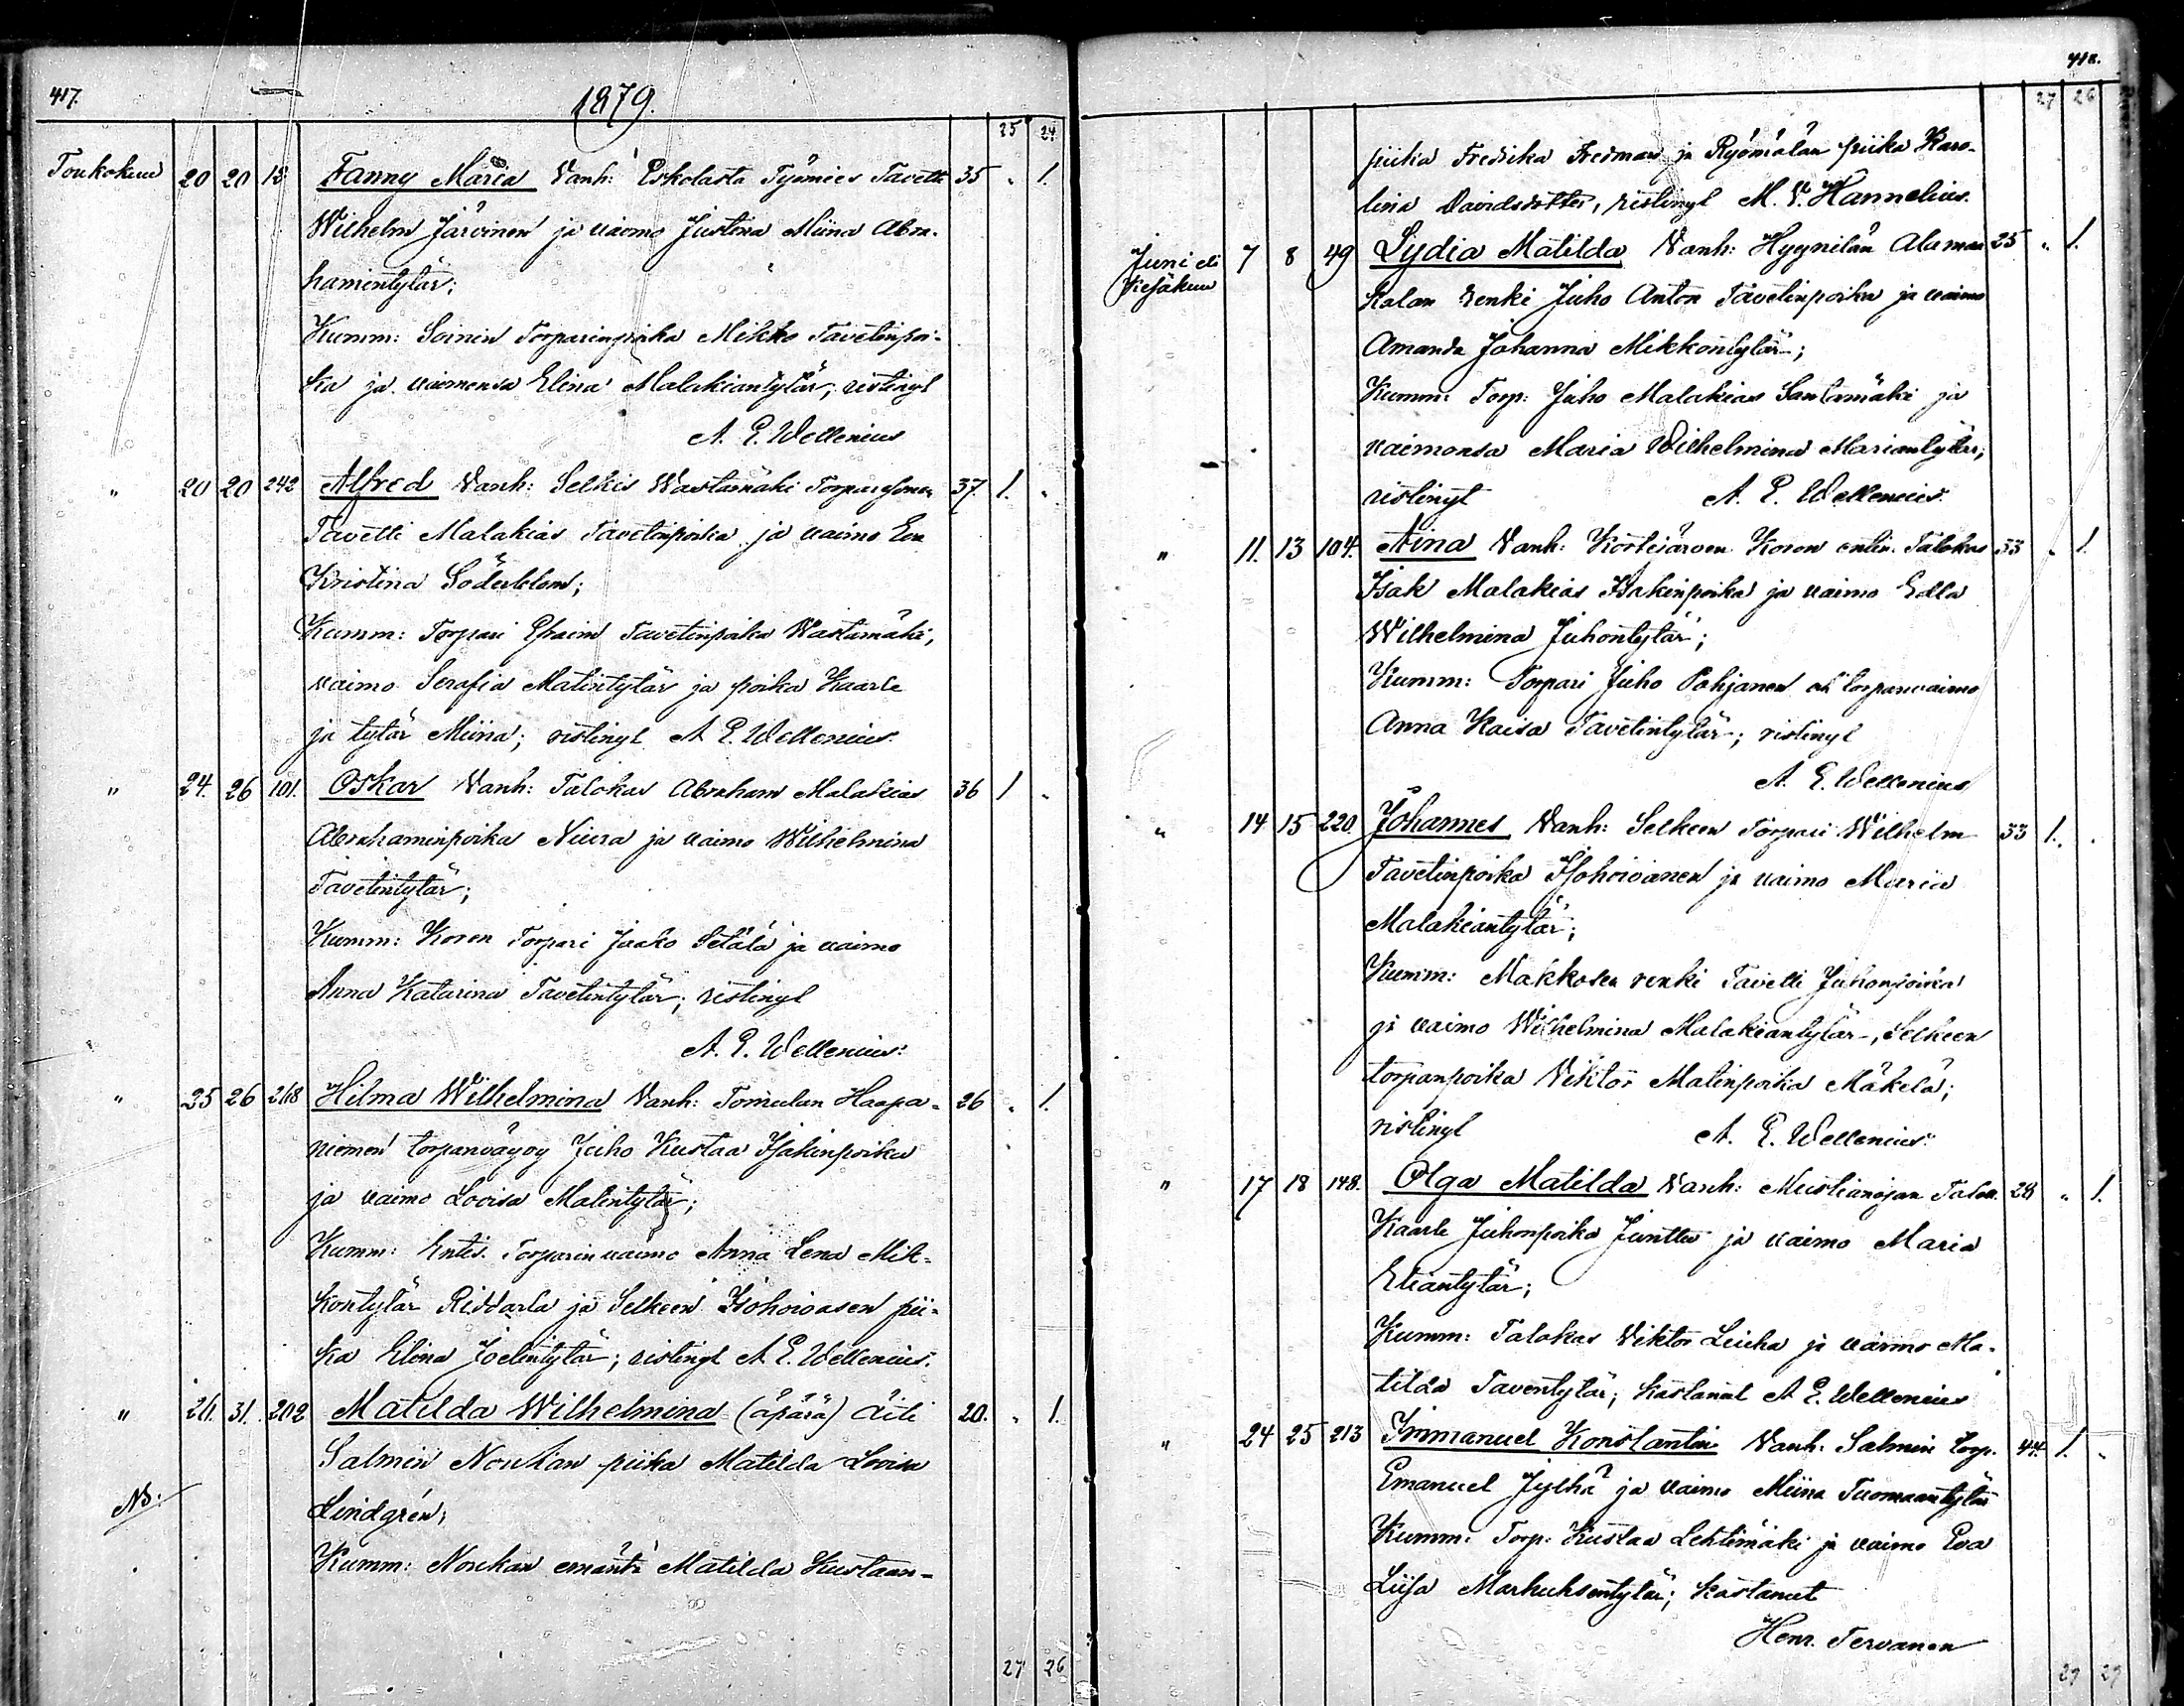 417.
1879.
25 24
Toukokuu 20 20 18 Fanny Maria Vanh: Eskolasta Työmies Tavetti 35 „ 1.
Wilhelm Järvinen ja vaimo Justina Miina Abra-
hamintytär;
Kumm: Soinin Torparinpoika Mikko Tavetinpoi-
ka ja vaimonsa Elina Malakiantytär, ristinyt
A. E. Wellenius
„ 20 20 242 Alfred Vanh: Selkis Wastamäki 37 1. „
Tavetti Malakias Tavetinpoika ja vaimo Eva
Kristina Söderblom;
Kumm: Torpari Efraim Tavetinpoika Wastamäki,
vaimo Serafia Matintytär ja poika Kaarle
ja tytär Miina; ristinyt A. E. Wellenius.
„ 24. 26 101. Oskar Vanh: Talokas Abraham Malakias 36 1 „
Abrahaminpoika Niura ja vaimo Wilhelmina
Tavetintytär;
Kumm: Koren Torpari Jaako Setälä ja vaimo
Anna Katarina Tavetintytär; ristinyt
A. E. Wellenius.
„ 25 26 268 Hilma Wilhelmina Vanh: Tomulan Haapa- 26 „ 1.
niemen torpanvävy Juho Kustaa Isakinpoika
ja vaimo Lovisa Matintytär;
Kumm: Entis. Torparinvaimo Anna Lena Mik-
kontytär Riddarla ja Selkeen Isohoivasen pii-
ka Elina Joelintytär; ristinyt A. E. Wellenius.
„ 26. 31. 202 Matilda Wilhelmina (äpärä) Äiti 20. „ 1.
Salmin Noukan piika Matilda Lovisa
NB: Lindgrén;
Kumm: Noukan emäntä Matilda Kustaan-
27 26
418.
27 26
piika Fredika Fredman ja Ryömälän piika Karo-
lina Davidsdotter, ristinyt M. V. Hannelius.
Juni eli Kesäkuu 7 8 49 Lydia Matilda Vanh: Hyynilän Alaman 25 „ 1.
kalan renki Juho Anton Tavetinpoika ja vaimo
Amanda Johanna Mikkontytär;
Kumm: Torp: Juho Malakias Santamäki ja
vaimonsa Maria Wilhelmina Mariantytär;
ristinyt A. E. Wellenius.
„ 11. 13 104. Aina Vanh: Körtejärven Koren entin. Talokas 33 „ 1.
Isak Malakias Isakinpoika ja vaimo Edla
Wilhelmina Juhontytär;
Kumm: Torpari Juho Pohjanen torpanvaimo
Anna Kaisa Tavetintytär; ristinyt
A. E. Wellenius
„ 14 15 220. Johannes Vanh: Selkeen Torpari Wilhelm 33 1. „
Tavetinpoika Isohoivanen ja vaimo Maria
Malakiantytär;
Kumm: Makkosen renki Tavetti Juhonpoika
ja vaimo Wilhelmina Malakiantytär, Selkeen
torpanpoika Viktor Matinpoika Mäkelä;
ristinyt A. E. Wellenius.
„ 17 18 148. Olga Matilda Vanh: Mustianojan Talok. 28 „ 1.
Kaarle Juhonpoika Junttu ja vaimo Maria
Eliantytär;
Kumm: Talokas Viktor Leuha ja vaimo Ma-
tilda Taventytär; kastanut A. E. Wellenius
„ 24 25 213 Immanuel Konstantin Vanh: Salmin torp. 44. 1. „
Emanuel Jylhä ja vaimo Miina Tuomaantytär
Kumm: Torp: Kustaa Lehtimäki ja vaimo Eva
Liisa Markuksentytär; kastanut
Henr. Tervanen
29 29